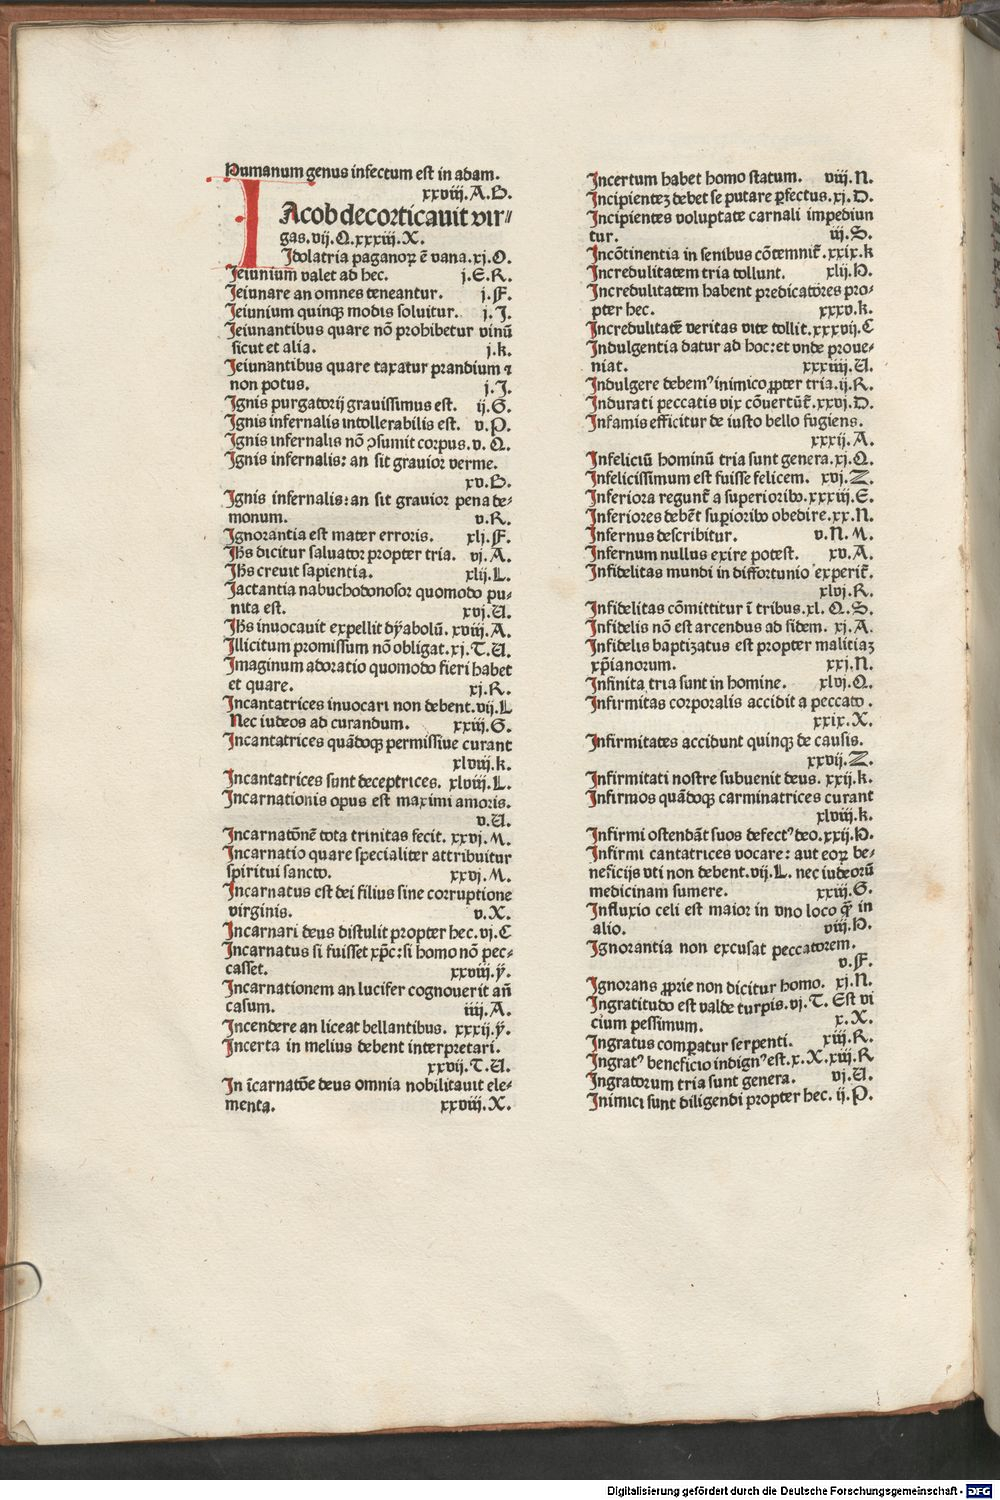 Humanum genus infectum est in adam.
xxviii.A.B.
IAcob decorticauit vir⸗
gas.vij.Q.xxxiii.X.
Idolatria paganoꝝ ē vana.xj.O.
Ieiunium valet ad hec. j.E.R.
Ieiunare an omnes teneantur. j.F.
Ieiunium quinqꝫ modis soluitur. j.I.
Ieiunantibus quare nō prohibetur vinū
sicut et alia. j.k.
Ieiunantibus quare taxatur prandium ⁊
non potus. j.I.
Ignis purgatorij grauissimus est. ij.G.
Ignis infernalis intollerabilis est. v.P.
Ignis infernalis nō ꝯsumit corpus.v.Q.
Ignis infernalis: an sit grauior verme.
xv.B.
Ignis infernalis:an sit grauior pena de⸗
monum. v.R.
Ignorantia est mater erroris. xlj.F.
Ihs̄ dicitur saluator propter tria. vj.A.
Ihs̄ creuit sapientia. xlij.L.
Iactantia nabuchodonosor quomodo pu⸗
nita est. xvj.U.
Ihs̄ inuocauit expellit dyabolū. xviii.A.
Illicitum promissum nō obligat.xj.T.U.
Imaginum adoratio quomodo fieri habet
et quare. xj.R.
Incantatrices inuocari non debent.vij.L
Nec iudeos ad curandum. xxiii.G.
Incantatrices quādoqꝫ permissiue curant
xlviii.k.
Incantatrices sunt deceptrices. xlviii.L.
Incarnationis opus est maximi amoris.
v.U.
Incarnatōnē tota trinitas fecit. xxvj.M.
Incarnatio quare specialiter attribuitur
spiritui sancto. xxvj.M.
Incarnatus est dei filius sine corruptione
virginis. v.X.
Incarnari deus distulit propter hec.vj.C
Incarnatus si fuisset xp̄c:si homo nō pec⸗
casset. xxviii.y.
Incarnationem an lucifer cognouerit añ
casum. iiii.A.
Incendere an liceat bellantibus. xxxij.y.
Incerta in melius debent interpretari.
xxvij.T.U.
In īcarnatōe deus omnia nobilitauit ele⸗
menta. xxviii.X.
Incertum habet homo statum. viii.N.
Incipienteꝫ debet se putare ꝑfectus.xj.D.
Incipientes voluptate carnali impediun
tur. iij.S.
Incōtinentia in senibus cōtemnit᷑.xxix.k
Incredulitatem tria tollunt. xlij.H.
Incredulitatem habent predicatores pro⸗
pter hec. xxxv.k.
Incredulitatē veritas vite tollit.xxxvij.C
Indulgentia datur ad hoc:et vnde proue⸗
niat. xxxiiii.U.
Indulgere debemꝰ inimico ꝓpter tria.ij.R.
Indurati peccatis vix cōuertūt᷑.xxvj.D.
Infamis efficitur de iusto bello fugiens.
xxxij.A.
Infeliciū hominū tria sunt genera.xj.Q.
Infelicissimum est fuisse felicem. xvj.Z.
Inferiora regunt᷑ a superioribꝰ.xxxiii.E.
Inferiores debēt suꝑioribꝰ obedire.xx.N.
Infernus describitur. v.N.M.
Infernum nullus exire potest. xv.A.
Infidelitas mundi in diffortunio experit᷑.
xlvj.R.
Infidelitas cōmittitur ī tribus.xl.Q.S.
Infidelis nō est arcendus ad fidem. xj.A.
Infidelis baptizatus est propter malitiaꝫ
xp̄ianorum. xxj.N.
Infinita tria sunt in homine. xlvj.Q.
Infirmitas corporalis accidit a peccato.
xxix.X.
Infirmitates accidunt quinqꝫ de causis.
xxvij.Z.
Infirmitati nostre subuenit deus. xxij.k.
Infirmos quādoqꝫ carminatrices curant
xlviii.k.
Infirmi ostendāt suos defectꝰ deo.xxij.H.
Infirmi cantatrices vocare: aut eoꝝ be⸗
neficijs vti non debent.vij.L. nec iudeorū
medicinam sumere. xxiii.G.
Influxio celi est maior in vno loco qꝫ̄ in
alio. viii.H.
Ignorantia non excusat peccatorem.
v.F.
Ignorans ꝓprie non dicitur homo. xj.N.
Ingratitudo est valde turpis.vj.T. Est vi
cium pessimum. x.X.
Ingratus comꝑatur serpenti. xiii.R.
Ingratꝰ beneficio indignꝰ est.x.X.xiii.R
Ingratorum tria sunt genera. vj.U.
Inimici sunt diligendi propter hec. ij.P.
Digitalisierung gefördert durch die Deutsche Forschungsgemeinschaft - DFG